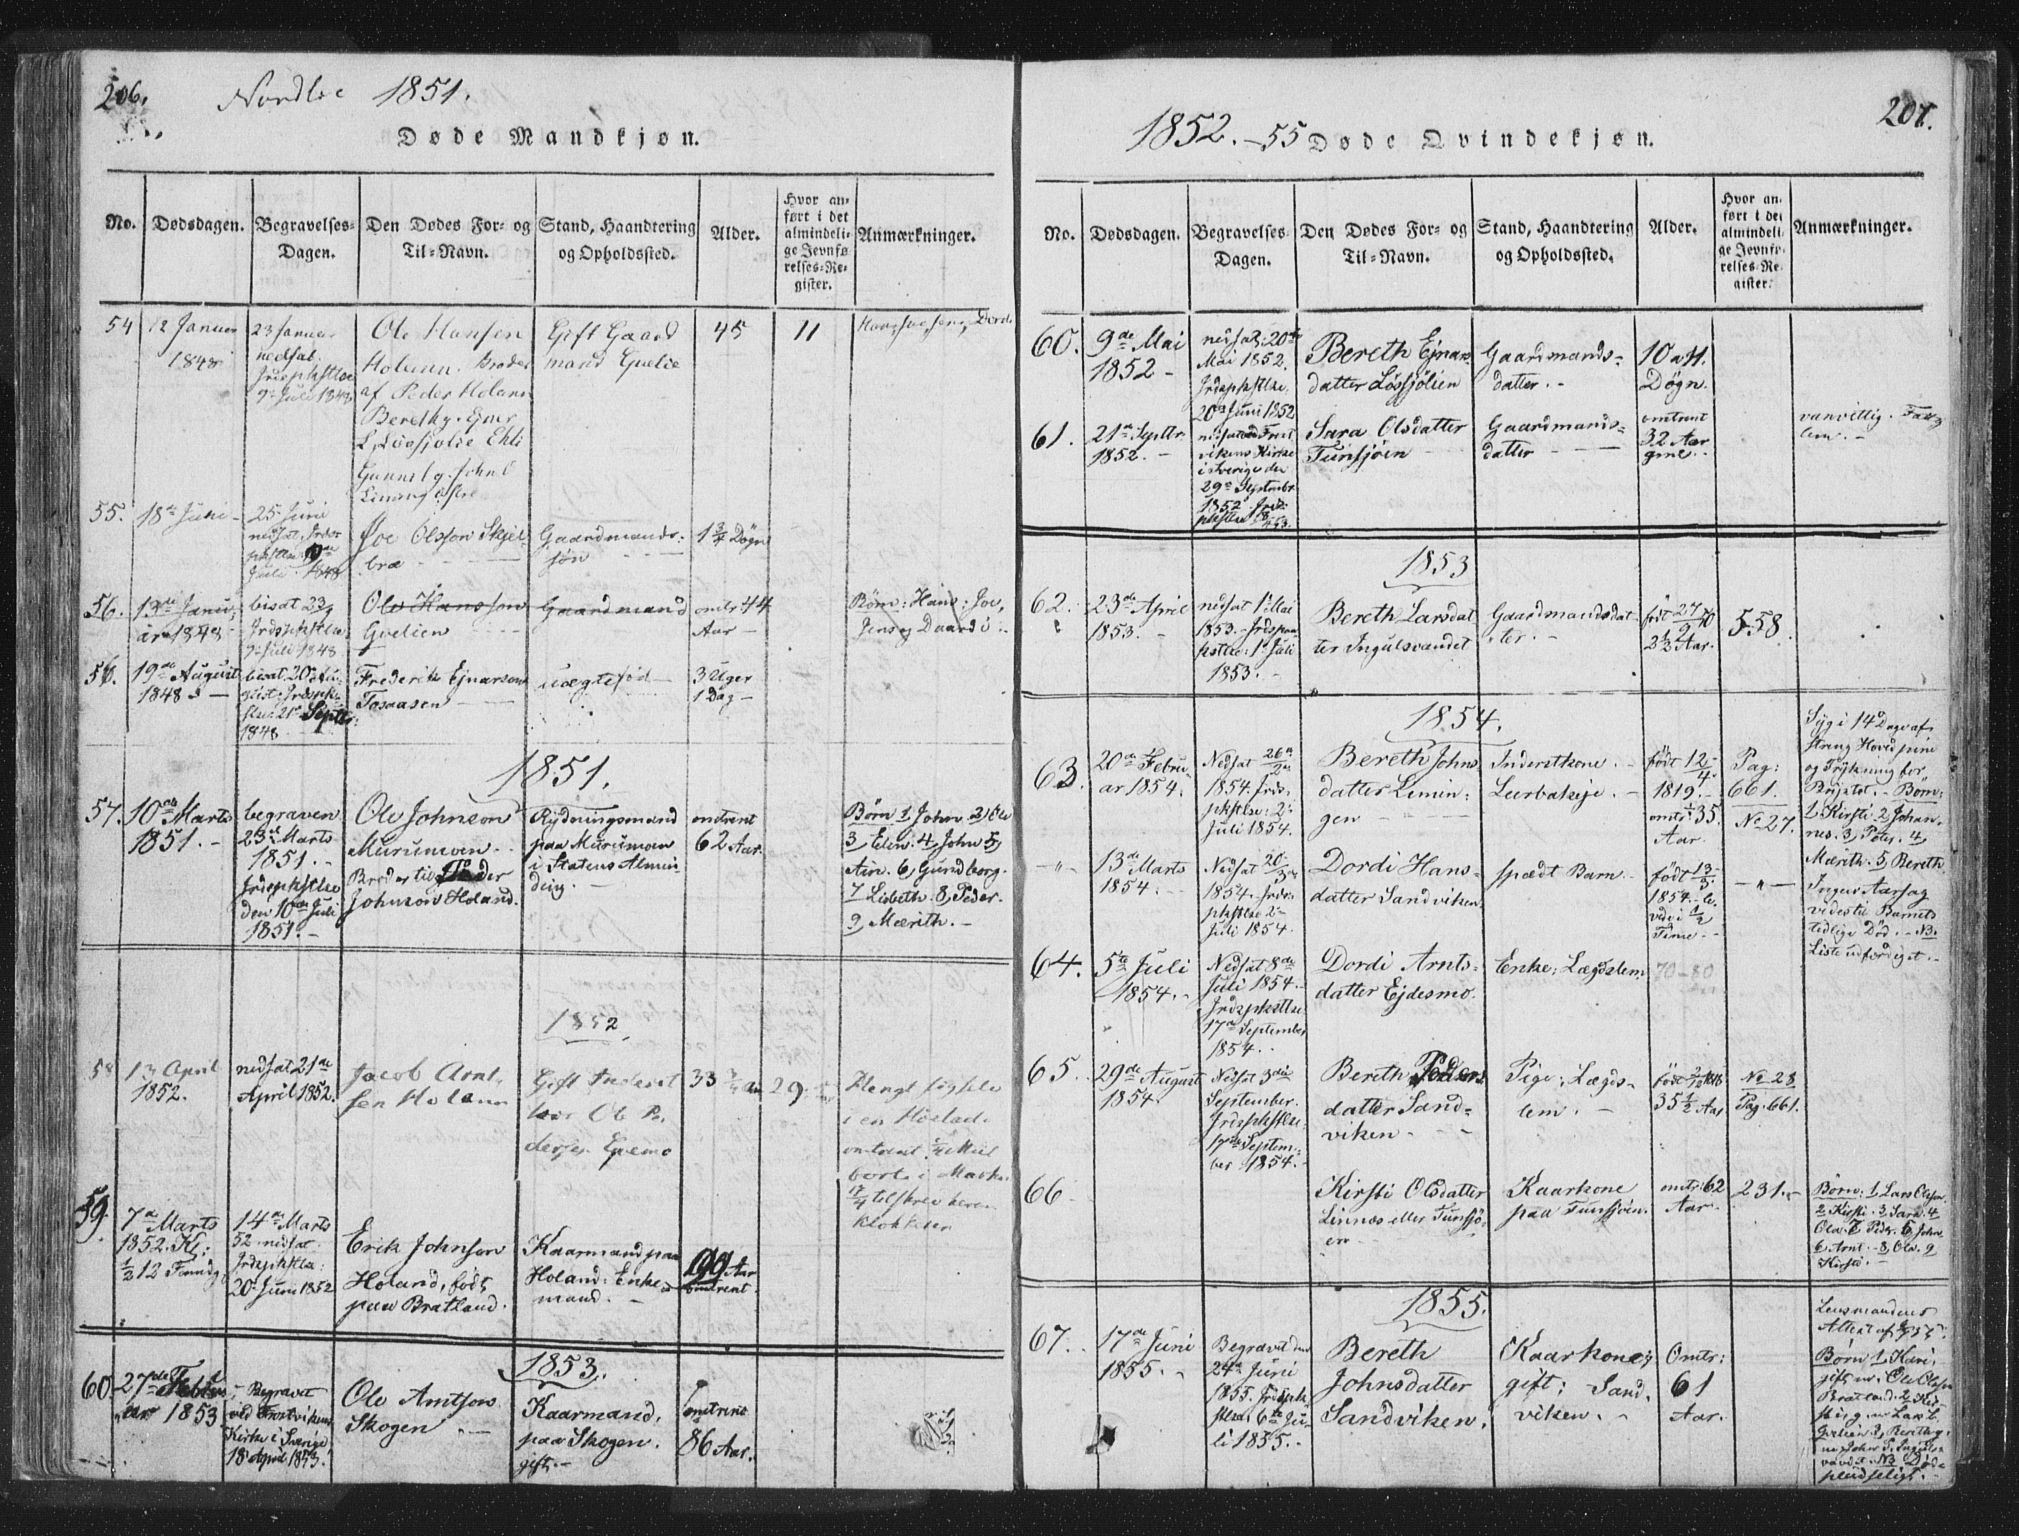 206.
Nordlie 1851.
Døde Mandkjøn.
No.
Dødsdagen.
Begravelses-
Dagen.
Den Dødes For- og
Til-Navn.
Stand, Haandtering
og Opholdssted.
Alder.
Hvor an-
ført i det
almindeli-
ge Jevnfø-
relses-Re-
gister.
Anmærkninger.
54
12 Januar
1848
23 Januar
nedsat.
9 Juli 1848
Ole Hansen
Holann. Broder
af Peder Holann
Gift Gaard
mand Gvelie
45
11
55.
18de Juni
25 Juni
nedsat.
Juli 1848
Joe Olsson Skjel-
bra
Gaardmands-
søn
1 3/4 Døgn
56.
13de Janu-
ar 1848
bisat 23
Jrdspkstlse
9 Juli 1848
Ole Hansson
Gvelien
Gaardmand
omtr 44
Aar
Børn: Hans, Joe,
Jens og Daardi
56.
19de August
1848
bisat 20
21 Septbr:
1848
Frederik Ejnarson
Tosaasen
uægtefød
3 Uger
1 Dag
1851.
57.
10de Marts
1851.
begraven
23de Marts
1851.
Jrdspkstlse
den 10de Juli
1851.
Ole Johnson
Murumoen
Broder til Peder
Johnson Holand.
Rydningsmand
paa Murumoen
i Statens Almin
ding.
omtrent
62 Aar.
Børn 1, John 2, Ole
3, Elen 4, John 5,
6, Gundborg
7 Lisbeth 8, Peder.
9, Mærith.
1852.
58
13 April
1852.
nedsat 21de
April 1852.
Jacob Arnt-
sen Holann
Gift Inderst
hos Ole Pe-
dersen
33
29
omtrent
tilskrev herr
Klokker
59.
7de Marts
1852. Kl:
1/2 12 Formdg
14de Marts
52 nedsat
Jrdspkstlse:
20 Juni 1852
Erik Johnson
Holand, født
paa Bratland.
Kaarmand paa
Holand: Enke-
mand.
90 Aar
omtrent.
1853.
60.
27de Febru
ar 1853
Begravet
ved Frostvikens
Kirke i Sverige
18 April 1853.
Ole Arntson
Skogen
Kaarmand,
paa Skogen.
gift.
omtrent
86 Aar.
207.
1852.-55
Døde Qvindekjøn.
No.
Dødsdagen.
Begravelses-
Dagen.
Den Dødes For- og
Til-Navn.
Stand, Haandtering
og Opholdssted.
Alder.
Hvor an-
ført i det
almindeli-
ge Jevnfø-
relses-Re-
gister.
Anmærkninger.
60.
9de Mai
1852
nedsat: 20de
Mai 1852.
Jrdspkstlse.
20de Juni 1852
Bereth Ejnars
datter Løssjølien
Gaardmands-
datter.
10 a 11.
Døgn.
61.
21de Septbr.
1852.
nedsat ved Frost
vikens Kirke
i Sverige den
29de Septembr
1852.
Sara Olsdatter
Tunsjøen
Gaardmands-
datter
omtrent
32 Aar
gml.
vanvittig.
lem.
1853
62.
23de April
1853.
nedsat 1 Mai
1853. Jrdspaa
pstlse: 1 Juli
1853.
Bereth Larsdat
ter Ingulsvandet
Gaardmandsdat
ter.
født 27
2 1/2 Aar.
558.
1854.
63.
20de Febru-
ar 1854.
Nedsat 26de
1854. Jrds-
pkstlse: 2
Juli 1854.
Bereth Johns
datter Limin-
gen
Inderstkone.
Leerbakeje.
født 12/4
1819.
omtr: 35.
Aar.
Pag:
661.
No 27.
Syg i 14 Dage af
streng Hovedpine
og Trykning for
Brystet. Børn:
1 Kirsti 2 Johan-
nes. 3, Peter. 4,
Mærith. 5, Bereth
Inger. Aarsag
vides til Barnets
tidlige Død. NB.
Liste udfærdiget.
-"-
13de Marts
1854.
Nedsat 20/3
1854. Jrds-
pkstlse 2
Juli 1854.
Dordi Hans-
datter Sandviken.
spædt Barn.
født 13/3
1854. le-
vede i 1/2
Time.
-"-
64.
5te Juli
1854.
Nedsat 8de
Juli 1854.
Jrdspkstlse
17de September
1854.
Dordi Arnts-
datter Ejdesmo.
Enke; Lægdslem.
70-80
65.
29de August
1854.
Nedsat 3die
September.
Jrdspkstlse:
17de Septem-
ber 1854.
Bereth Peders
datter Sand-
viken
Pige; Lægds-
lem.
35 1/2 Aar
No 28
Pag. 661.
66
Kirsti Olsdatter
Linnes eller Tunsjø-
en
Kaarkone
paa Tunsjøen.
omtr: 62
Aar.
231.
Børn: 1, Lars Olsson
2 Kirsti. 3 Sara. 4
Ole. 5 Peder. 6 John
6 Arnt. 8, Ole. 9
Kirsti.
1855.
67.
17de Juni
1855.
Begravet den
24de Juni
1855. Jrdspk-
stlse. 6te Ju-
li 1855.
Bereth
Johnsdatter
Sandviken.
Kaarkone;
gift; Sand-
viken.
Omtr:
61
Aar.
Lensmandens
Attest af
Børn 1, Kari,
gift m: Ole Olson
Bratland. 2 Kir-
sti g. m Lars L.
Gvelien 3, Bereth g.
m. John P. Inguls-
vandet. NB Døde
pludseligt.